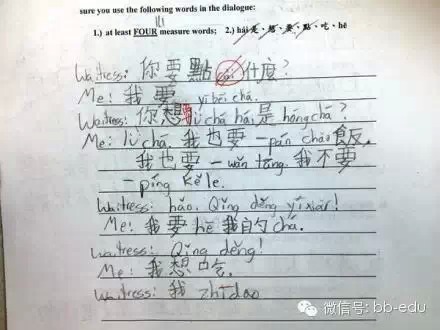 sure you use the following words in the dialogue:
1.) at least FOUR measure words; 2.) hái是、想、要、點、吃、hē
Waitress: 你要點 cài 什麼?
Me: 我要 yì bēi chá.
Waitress: 你想要 lǜ chá hái是 hóng chá?
Me: lǜ chá. 我也要一pán chǎo飯.
我也要一wǎn tāng. 我不要
一píng kělè.
Waitress: hǎo. Qǐng děng yíxiàr!
Me: 我要 hē 我的 chá.
Waitress: Qǐng děng!
Me: 我想吃.
Waitress: 我 zhīdao
微信号: bb-edu